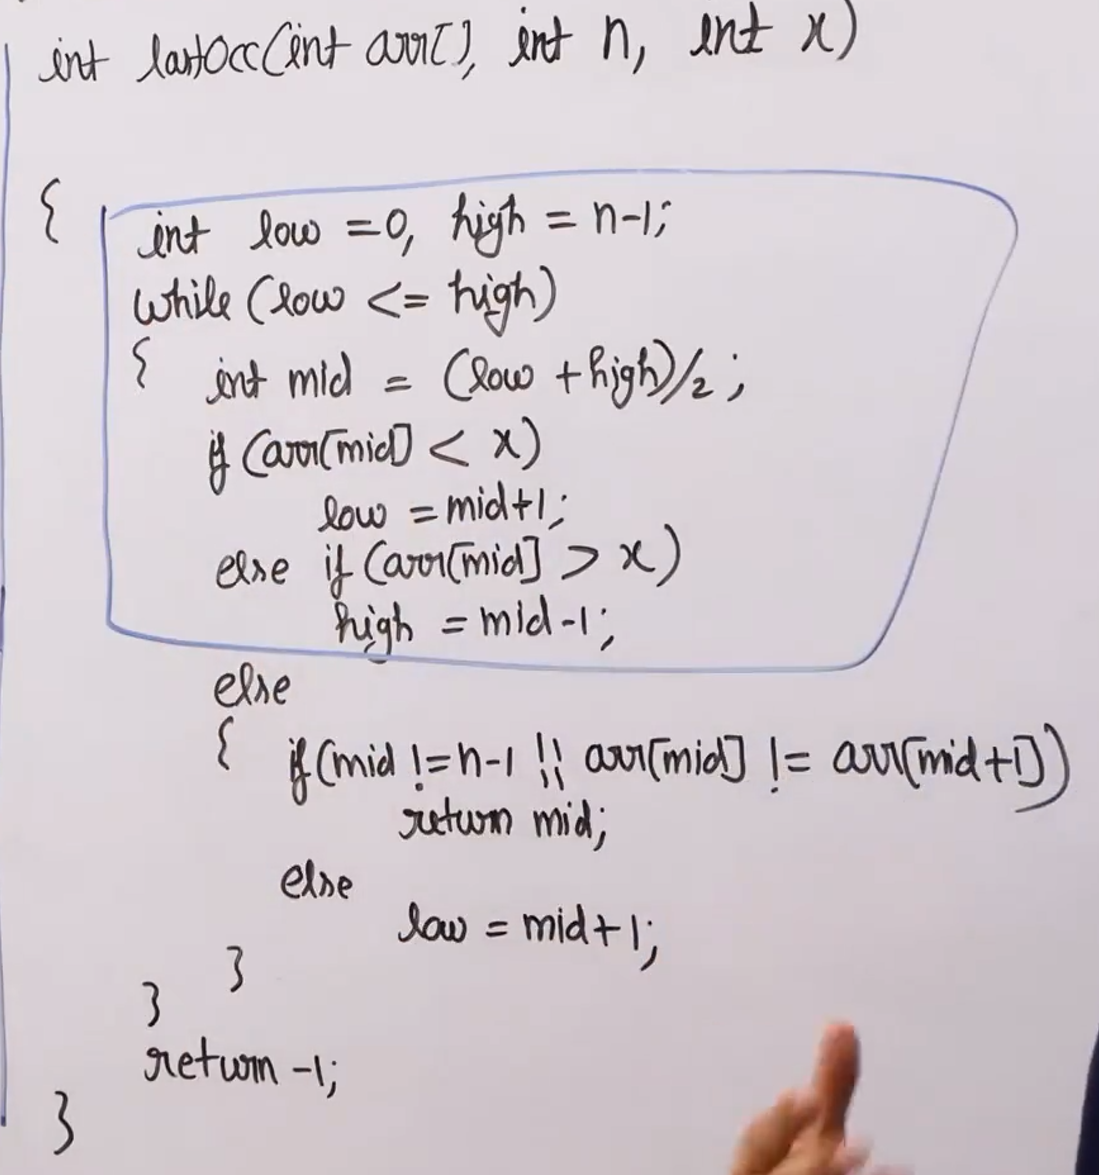 int lastOcc(int arr[], int n, int x)
{
int low =0, high = n-1;
while (low <= high)
{ int mid = (low +high)/2 ;
if (arr[mid] < x)
low =mid+1;
else if (arr[mid] > x)
high = mid-1;
else
{ if(mid !=n-1 || arr[mid] != arr[mid+1])
return mid;
else
low = mid+1;
}
}
return -1;
}